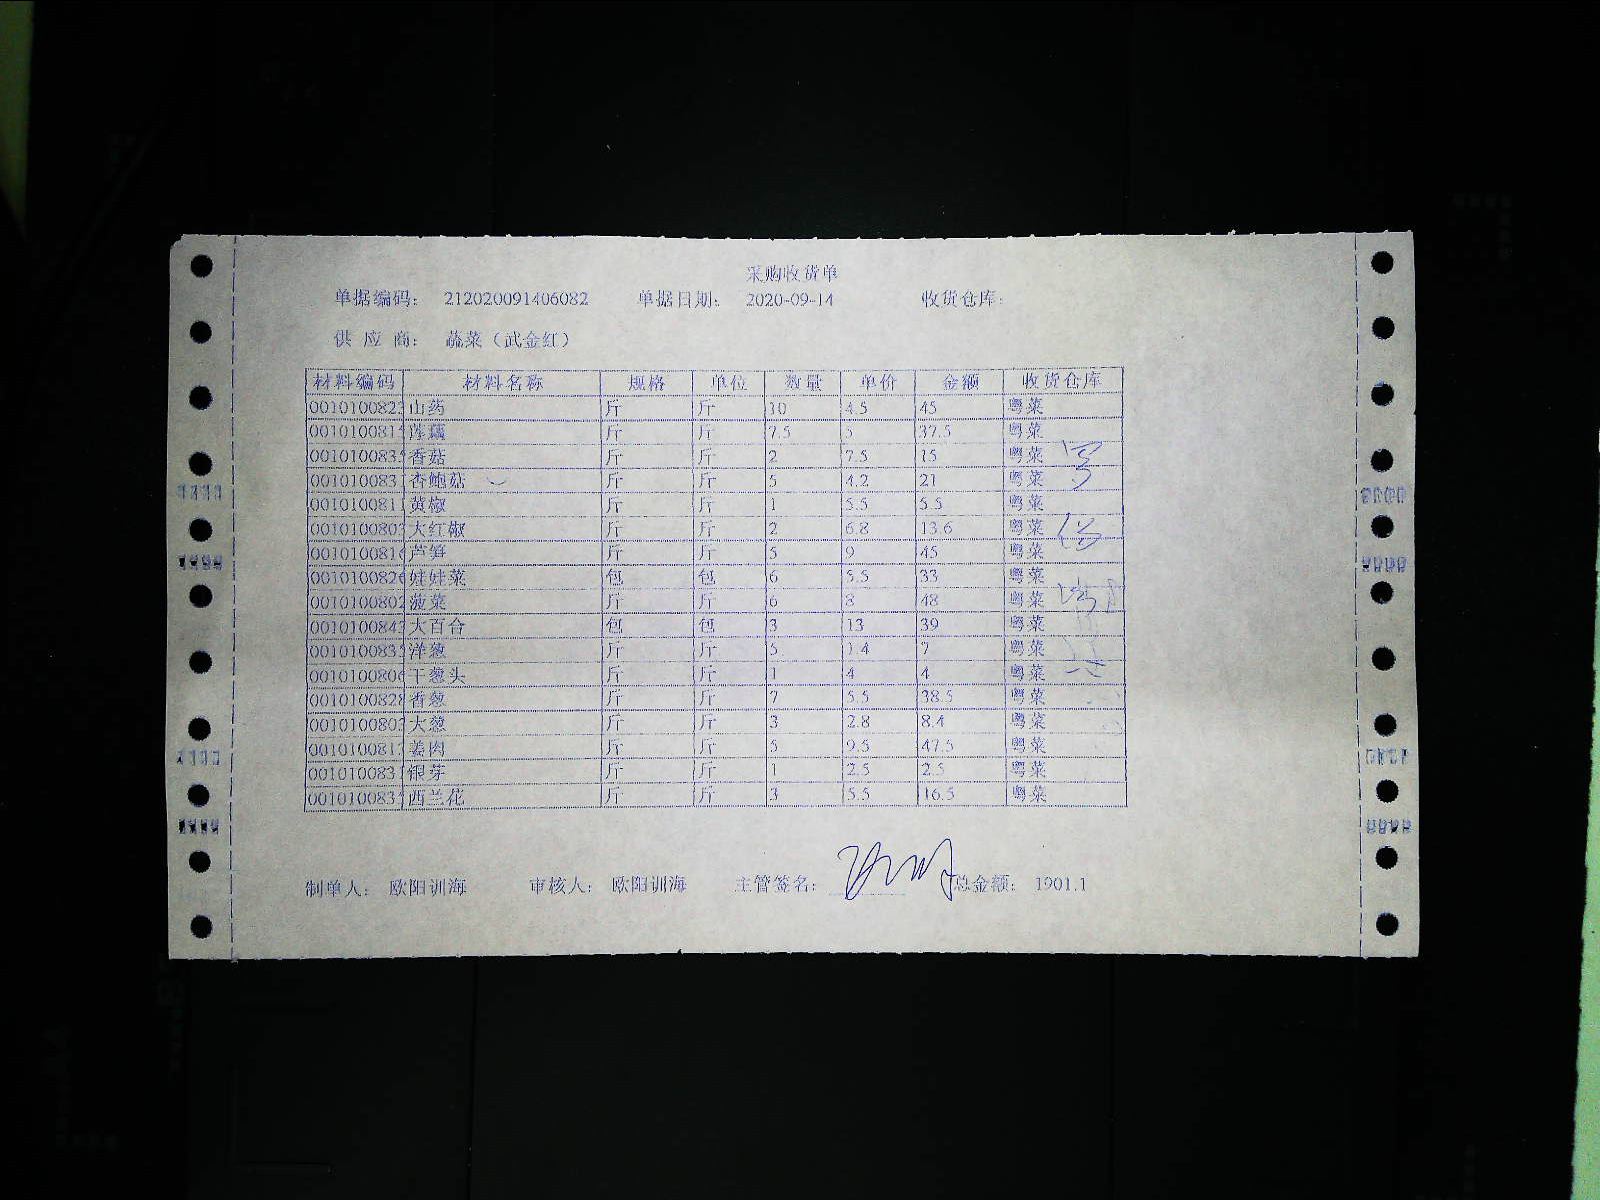 采购收货单
单据编码： 212020091406082 单据日期： 2020-09-14 收货仓库：
供 应 商： 蔬菜（武金红）
材料编码 材料名称 规格 单位 数量 单价 金额 收货仓库
0010100823 山药 斤 斤 10 4.5 45 粤菜
001010081 莲藕 斤 斤 7.5 5 37.5 粤菜
001010083 香菇 斤 斤 2 7.5 15 粤菜
001010083 杏鲍菇 斤 斤 5 4.2 21 粤菜
001010081 黄椒 斤 斤 1 5.5 5.5 粤菜
001010080 大红椒 斤 斤 2 6.8 13.6 粤菜
001010081 芦笋 斤 斤 5 9 45 粤菜
001010082 娃娃菜 包 包 6 5.5 33 粤菜
001010080 菠菜 斤 斤 6 8 48 粤菜
001010084 大百合 包 包 3 13 39 粤菜
001010083 洋葱 斤 斤 5 1.4 7 粤菜
001010080 干葱头 斤 斤 1 4 4 粤菜
001010082 香葱 斤 斤 7 5.5 38.5 粤菜
001010080 大葱 斤 斤 3 2.8 8.4 粤菜
001010081 姜肉 斤 斤 5 9.5 47.5 粤菜
001010083 银芽 斤 斤 1 2.5 2.5 粤菜
001010083 西兰花 斤 斤 3 5.5 16.5 粤菜
制单人： 欧阳训海 审核人： 欧阳训海 主管签名： 总金额： 1901.1